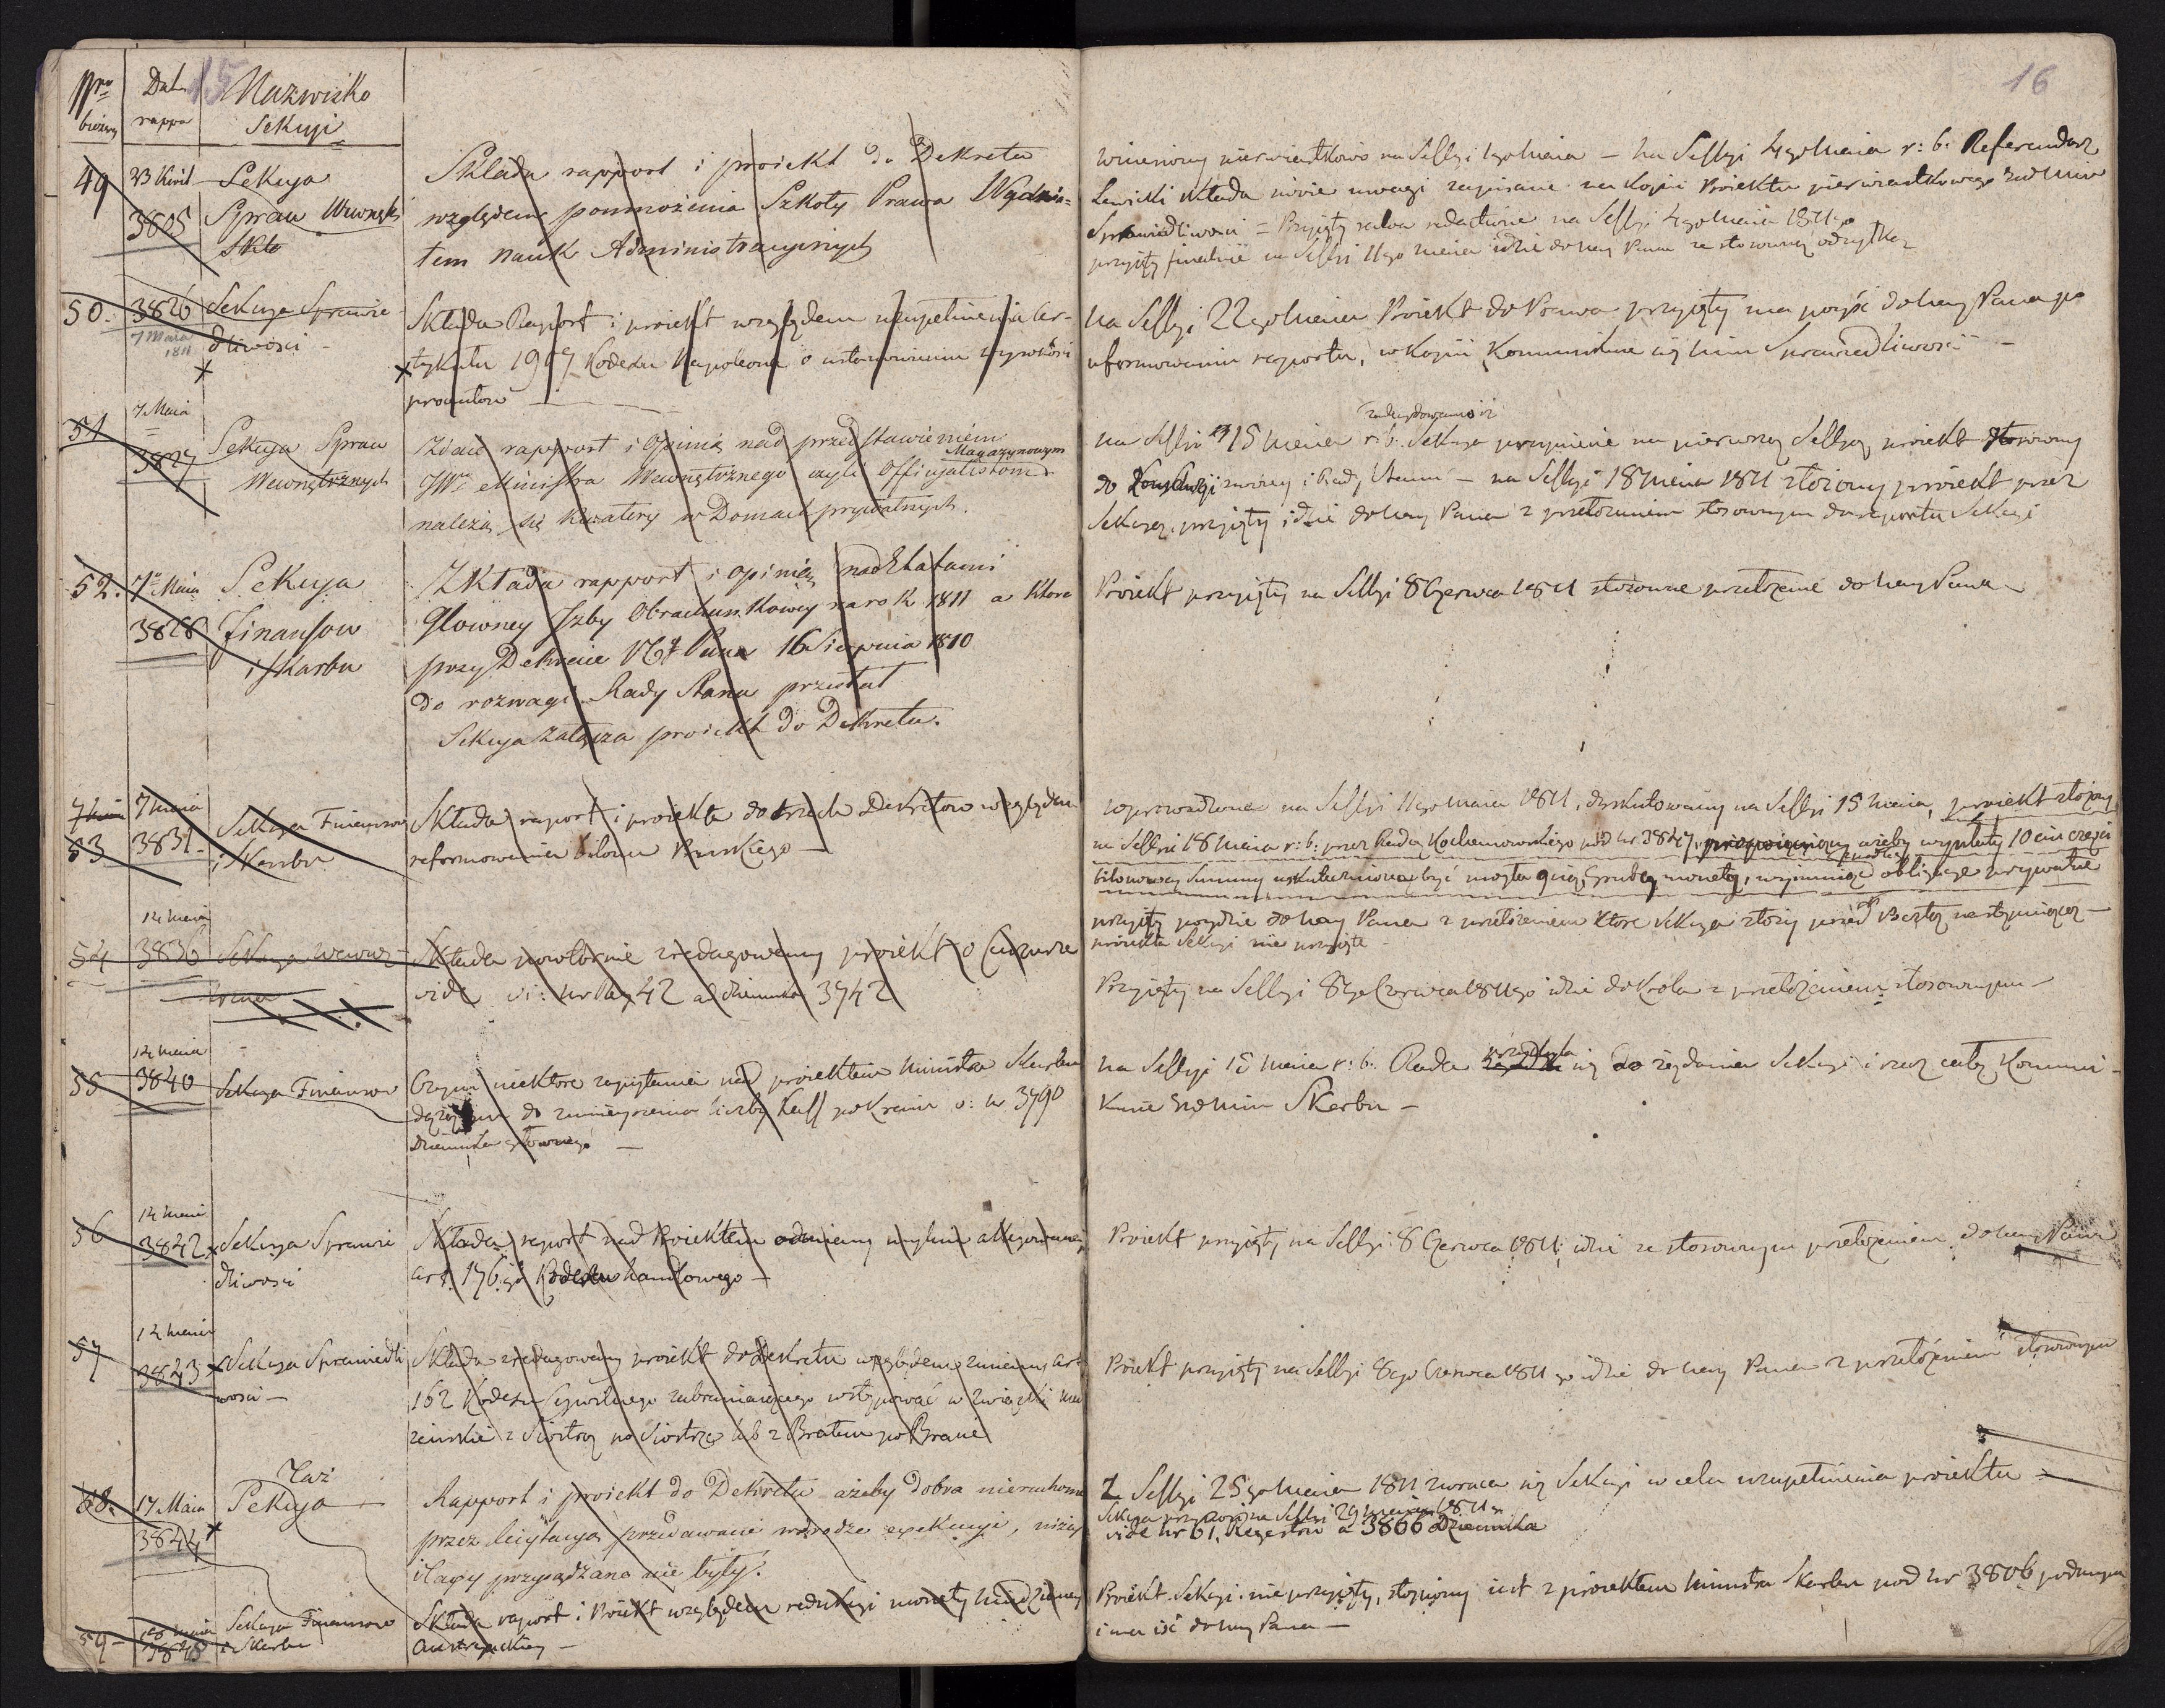 15
Nro bieżący
Dat rappo
Nazwisko Sekcyi
49
23 Kwit
3805
Sekcya
Spraw Wewnęt
Składa rapport i proiekt do Dekretu
względem pomnożenia Szkoły Prawa Wydzia=
łem nauk Administracyinych
50.
3826
7 Maia
1811
Sekcya Sprawie
dliwości
Składa Raport i proiekt względem uzupełnienia Ar-
tykułu 1907 Kodexu Napoleona o ustanowieniu wysokości
procentow
51
7 Maia
3827
Sekcya Spraw
Wewnętrznych
Zdaie rapport i Opinią nad przedstawieniem
Magazynowym
JWo Ministra Wewnętrznego czyli Officyalistom
należą się Kwatery w Domach prywatnych.
52.
7o Maia
3828
Sekcya
Finansow
i Skarbu
Zkłada rapport i opinią nad Etatami
Głowney Izby Obrachunkowey na rok 1811 a ktore
przy Dekrecie NGo Pana 16 Sierpnia 1810
do rozwagi Rady Stanu przesłał
Sekcya załącza proiekt do Dekretu.
7 Maia
53
7 Maia
3831
Sekcya Finansow
i Skarbu
Składa raport i proiekta do trzech Dekretow względem
reformowania bilonu Pruskiego
54
14 Maia
3836
Sekcya Wewnę-
trzna
Składa powtornie zredagowany proiekt o Cenzurze
vide vi: Nr 42 ad dziennika 3742
55
14 Maia
3840
Sekcya Finansow
Czyni niektore zapytania nad proiektem Ministra Skarbu
do zmnieyszenia liczby Kass po Kraiu v: nr 3790
Dziennika głownego
56
14 Maia
3842
Sekcya Sprawie
dliwości
Składa raport nad Proiektem odmiany
art. 176 go Kodexu handlowego
57
14 Maia
3843
Sekcya Sprawiedli
wości
Składa zredagowany proiekt do Dekretu względem zmiany art
162 Kodexu Cywilnego zabraniaiącego wstępować w związki mał
żeńskie z Siostrą po Siostrze lub z Bratem po Bracie
58.
17 Maia
3844
Taż
Sekcya
Rapport i proiekt do Dekretu ażeby dobra nieruchome
przez licytacyą przedawane w drodze exekucyi, niżey
Taxy przysądzane nie były.
59
18 Maia
3845
Sekcya Finansow
i Skarbu
Składa raport i Proiekt względem redukcyi monety miedzianey
Austryackiey
16
wniesiony pierwiastkowo na Sessyi 1go Maia - na Sessyi 4go Maia r: b: Referendarz
Lewicki składa swoie uwagi zapisane na kopii Proiektu pierwiastkowego
Sprawiedliwości = Przyięty salva redactione na Sessyi 4go Maia 1811go
przyięty finalnie na Sessyi 11go Maia idzie do Nay Pana ze stosowną odezwką
Na Sessyi 22go Maia Proiekt do Prawa przyięty ma poyść do Nay Pana po
uformowaniu raportu, w kopii Kommunikuie się Min Sprawiedliwości
na Sessyi 15 Maia r: b. Sekcya przyniesie na pierwszą Sessyą proiekt stosowny
do i Rady Stanu - na Sessyi 18 Maia 1811 złożony proiekt przez
Sekcyą, przyięty idzie do Nay Pana z przełożeniem stosownym do raportu Sekcyi
Proiekt przyięty na Sessyi 8 Czerwca 1811 stosowne przełożenie do Nay Pana
wprowadzone na Sessyi 11go Maia 1811, dyskutowany na Sessyi 15 Maia, proiekt złożony
na Sessyi 18 Maia r: b: przez Radcę Kochanowskiego pod nr. 3847, ażeby wypłaty 10 części
bilonowey Summy uskuteczniona być mogła grubą monetą, wyymuiąc obligacye prywatne
przyięty poydzie do Nay Pana z przełożeniem ktore Sekcya złoży przed Sessyą następuiącą
proiekta Sekcyi nie przyięte
Przyięty na Sessyi 8go Czerwca 1811go idzie do Króla z przełożeniem stosownym
Na Sessyi 15 Maia r: b: Rada przychyla się do żądania Sekcyi i rzecz całą Kommu-
kuie Min Skarbu
Proiekt przyięty na Sessyi 8 Czerwca 1811 idzie ze stosownym przełożeniem do Nay Pana
Proiekt przyięty na Sessyi 8go Czerwca 1811 go idzie do Nay Pana z przełożeniem stosownym
Z Sessyi 25go Maia 1811 zwraca się Sekcyi w celu uzupełnienia proiektu
Sekcya na Sessyi 29 Maia 1811
vide nr 61. Regestru a 3866 Dziennika
Proiekt Sekcyi nie przyięty, złożony iest z proiektem Ministra Skarbu pod Nr 3806 podanym
i ma iść do Nay Pana